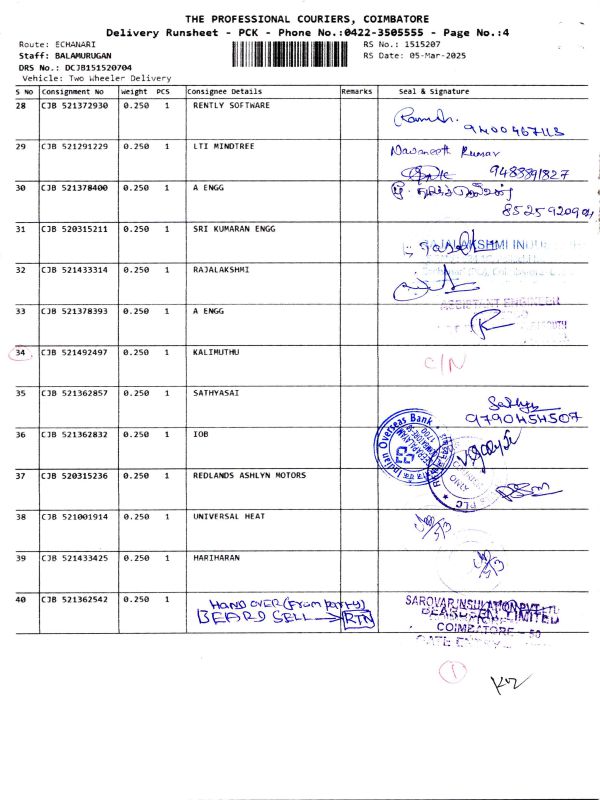 THE PROFESSIONAL COURIERS, COIMBATORE
Delivery Runsheet - PCK - Phone No.:0422-3505555 - Page No.:4
Route: ECHANARI
RS No.: 1515207
Staff: BALAMURUGAN
RS Date: 05-Mar-2025
DRS No.: DCJB151520704
Vehicle: Two Wheeler Delivery
S No Consignment No Weight PCS Consignee Details Remarks Seal & Signature
28 CJB 521372930 0.250 1 RENTLY SOFTWARE
9400467113
29 CJB 521291229 0.250 1 LTI MINDTREE Navaneeth Kumar
9488891827
30 CJB 521378400 0.250 1 A ENGG
31 CJB 520315211 0.250 1 SRI KUMARAN ENGG
32 CJB 521433314 0.250 1 RAJALAKSHMI
ASSISTANT ENGINEER
33 CJB 521378393 0.250 1 A ENGG
34 CJB 521492497 0.250 1 KALIMUTHU C/N
35 CJB 521362857 0.250 1 SATHYASAI Sathya
9790454507
36 CJB 521362832 0.250 1 IOB Indian Overseas Bank
37 CJB 520315236 0.250 1 REDLANDS ASHLYN MOTORS
PLC
38 CJB 521001914 0.250 1 UNIVERSAL HEAT
39 CJB 521433425 0.250 1 HARIHARAN
40 CJB 521362542 0.250 1 HAND OVER (From party)
BEARD SELL → RTN
SAROVAR INSULATION PVT LTD
BEARDSELL LIMITED
COIMBATORE - 50
1